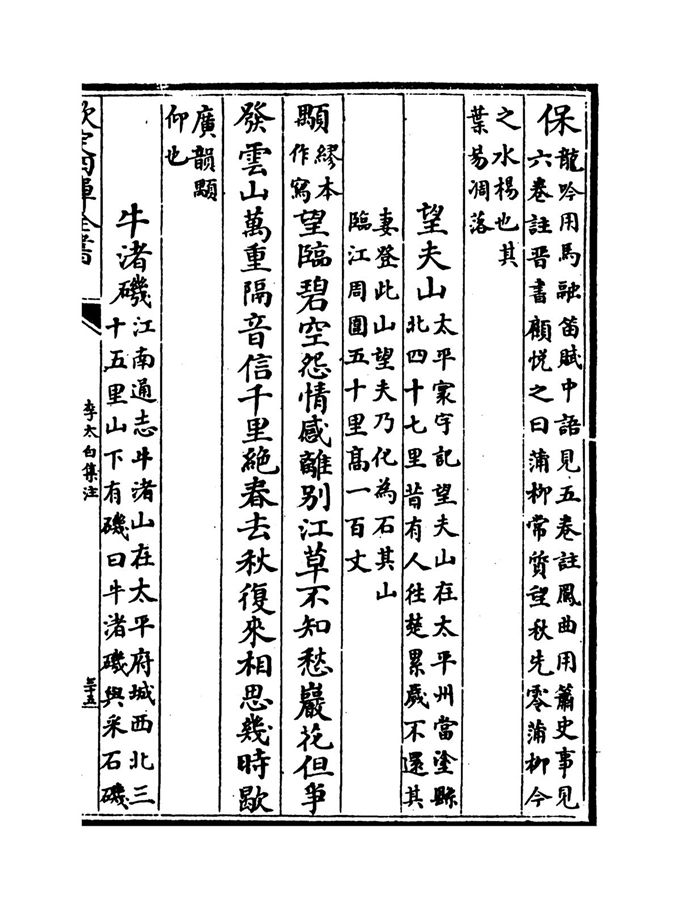 保龍吟用馬融笛賦中語見五卷註鳳曲用簫史事見
六卷註晋書顧悅之曰蒲柳常質望秋先零蒲柳今
之水楊也其
葉易凋落
望夫山太平寰宇記望夫山在太平州當塗縣
北四十七里昔有人往楚累歲不還其
妻登此山望夫乃化為石其山
臨江周圍五十里髙一百丈
顒繆本
作寫望臨碧空怨情感離别江草不知愁巖花但爭
發雲山萬重隔音信千里絶春去秋復來相思幾時歇
廣韻顒
仰也
牛渚磯江南通志牛渚山在太平府城西北三
十五里山下有磯曰牛渚磯與采石磯
欽定四庫全書
李太白集注
三十五